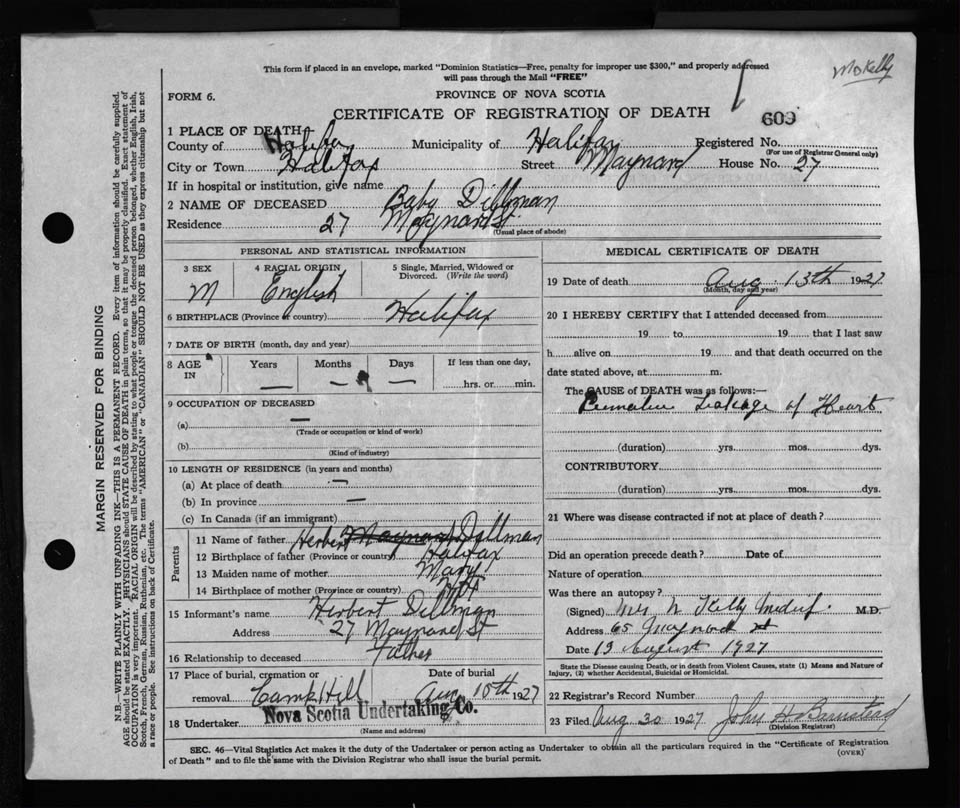 This form if placed in an envelope, marked "Dominion Statistics—Free, penalty for improper use $300," and properly addressed
will pass through the Mail "FREE"
McKelly
FORM 6.
PROVINCE OF NOVA SCOTIA
CERTIFICATE OF REGISTRATION OF DEATH
609
1 PLACE OF DEATH
County of Halifax Municipality of Halifax Registered No.
(For use of Registrar General only)
City or Town Halifax Street Maynard House No. 27
If in hospital or institution, give name
2 NAME OF DECEASED Baby Dillman
Residence 27 Maynard St.
(Usual place of abode)
PERSONAL AND STATISTICAL INFORMATION
3 SEX M
4 RACIAL ORIGIN English
5 Single, Married, Widowed or Divorced. (Write the word)
6 BIRTHPLACE (Province or country) Halifax
7 DATE OF BIRTH (month, day and year)
8 AGE IN Years — Months — Days — If less than one day, hrs. or min.
9 OCCUPATION OF DECEASED
(a) —
(Trade or occupation or kind of work)
(b)
(Kind of industry)
10 LENGTH OF RESIDENCE (in years and months)
(a) At place of death —
(b) In province —
(c) In Canada (if an immigrant)
Parents
11 Name of father Herbert Maynard Dillman
12 Birthplace of father (Province or country) Halifax
13 Maiden name of mother Mary
14 Birthplace of mother (Province or country)
15 Informant's name Herbert Dillman
Address 27 Maynard St
16 Relationship to deceased Father
17 Place of burial, cremation or removal Camp Hill
Date of burial Aug 15th 1927
18 Undertaker Nova Scotia Undertaking Co.
(Name and address)
MEDICAL CERTIFICATE OF DEATH
19 Date of death Aug 13th 1927
(Month, day and year)
20 I HEREBY CERTIFY that I attended deceased from
19 to 19 that I last saw
h alive on 19 and that death occurred on the
date stated above, at m.
The CAUSE of DEATH was as follows:—
Leakage of Heart
(duration) yrs. mos. dys.
CONTRIBUTORY
(duration) yrs. mos. dys.
21 Where was disease contracted if not at place of death?
Did an operation precede death? Date of
Nature of operation
Was there an autopsy?
(Signed) Mrs N Kelly M.D.
Address 65 Maynard St
Date 13 August 1927
State the Disease causing Death, or in death from Violent Causes, state (1) Means and Nature of
Injury, (2) whether Accidental, Suicidal or Homicidal.
22 Registrar's Record Number
23 Filed Aug 30 1927 John H
(Division Registrar)
SEC. 46—Vital Statistics Act makes it the duty of the Undertaker or person acting as Undertaker to obtain all the particulars required in the "Certificate of Registration
of Death" and to file the same with the Division Registrar who shall issue the burial permit.
(OVER)
MARGIN RESERVED FOR BINDING
N.B.—WRITE PLAINLY WITH UNFADING INK—THIS IS A PERMANENT RECORD. Every item of information should be carefully supplied.
AGE should be stated EXACTLY. PHYSICIANS should STATE CAUSE OF DEATH in plain terms, so that it may be properly classified. Exact statement of
OCCUPATION is very important. RACIAL ORIGIN will be described by stating to what people or tongue the deceased person belonged, whether English, Irish,
Scotch, French, German, Russian, Ruthenian, etc. The terms "AMERICAN" or "CANADIAN" SHOULD NOT BE USED as they express citizenship but not
a race or people. See instructions on back of Certificate.